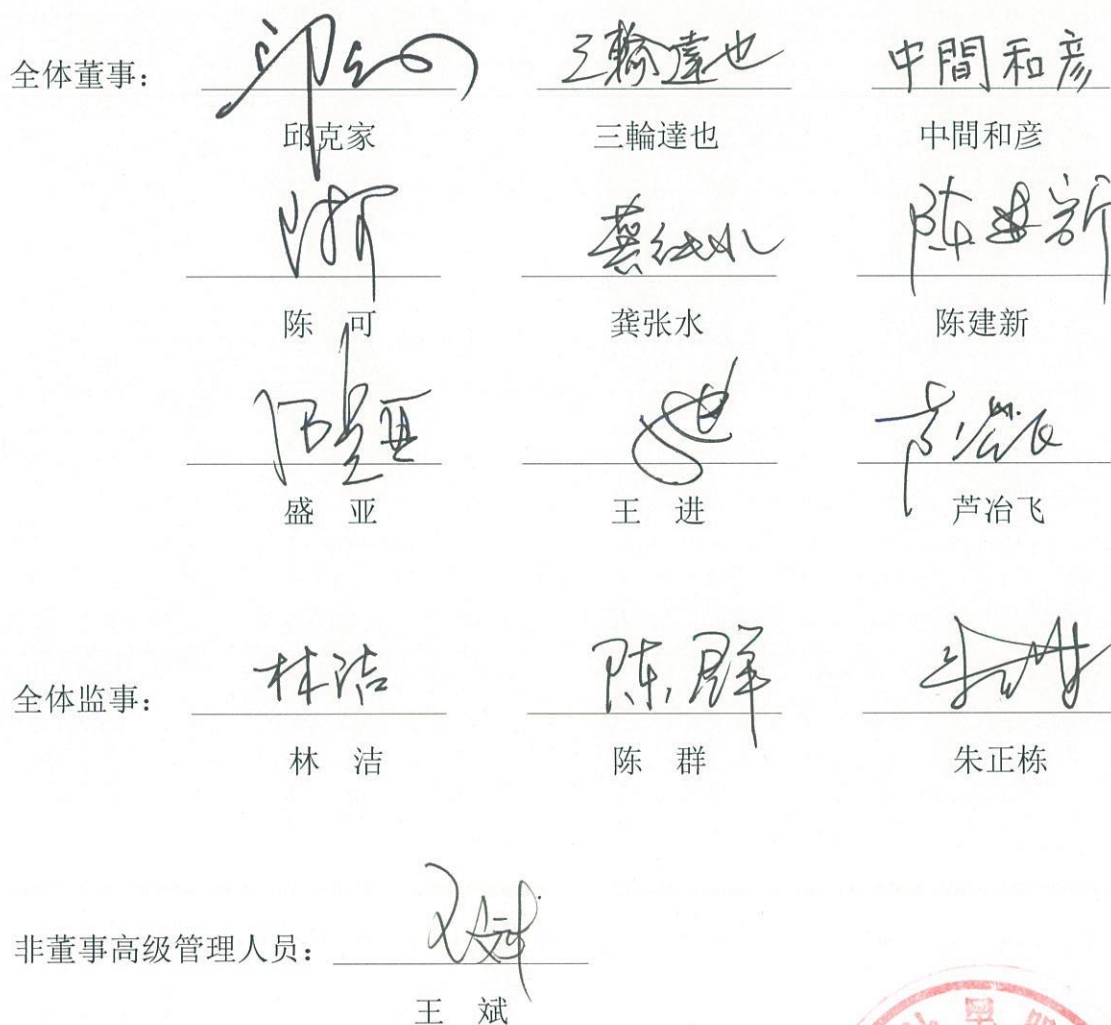 全体董事： 三輪達也 中間和彦
邱克家 三輪達也 中間和彦
陈可 陈建新
陈 可 龚张水 陈建新
盛 亚 王 进 芦冶飞
全体监事： 林洁 陈群
林 洁 陈 群 朱正栋
非董事高级管理人员： 王斌
王 斌